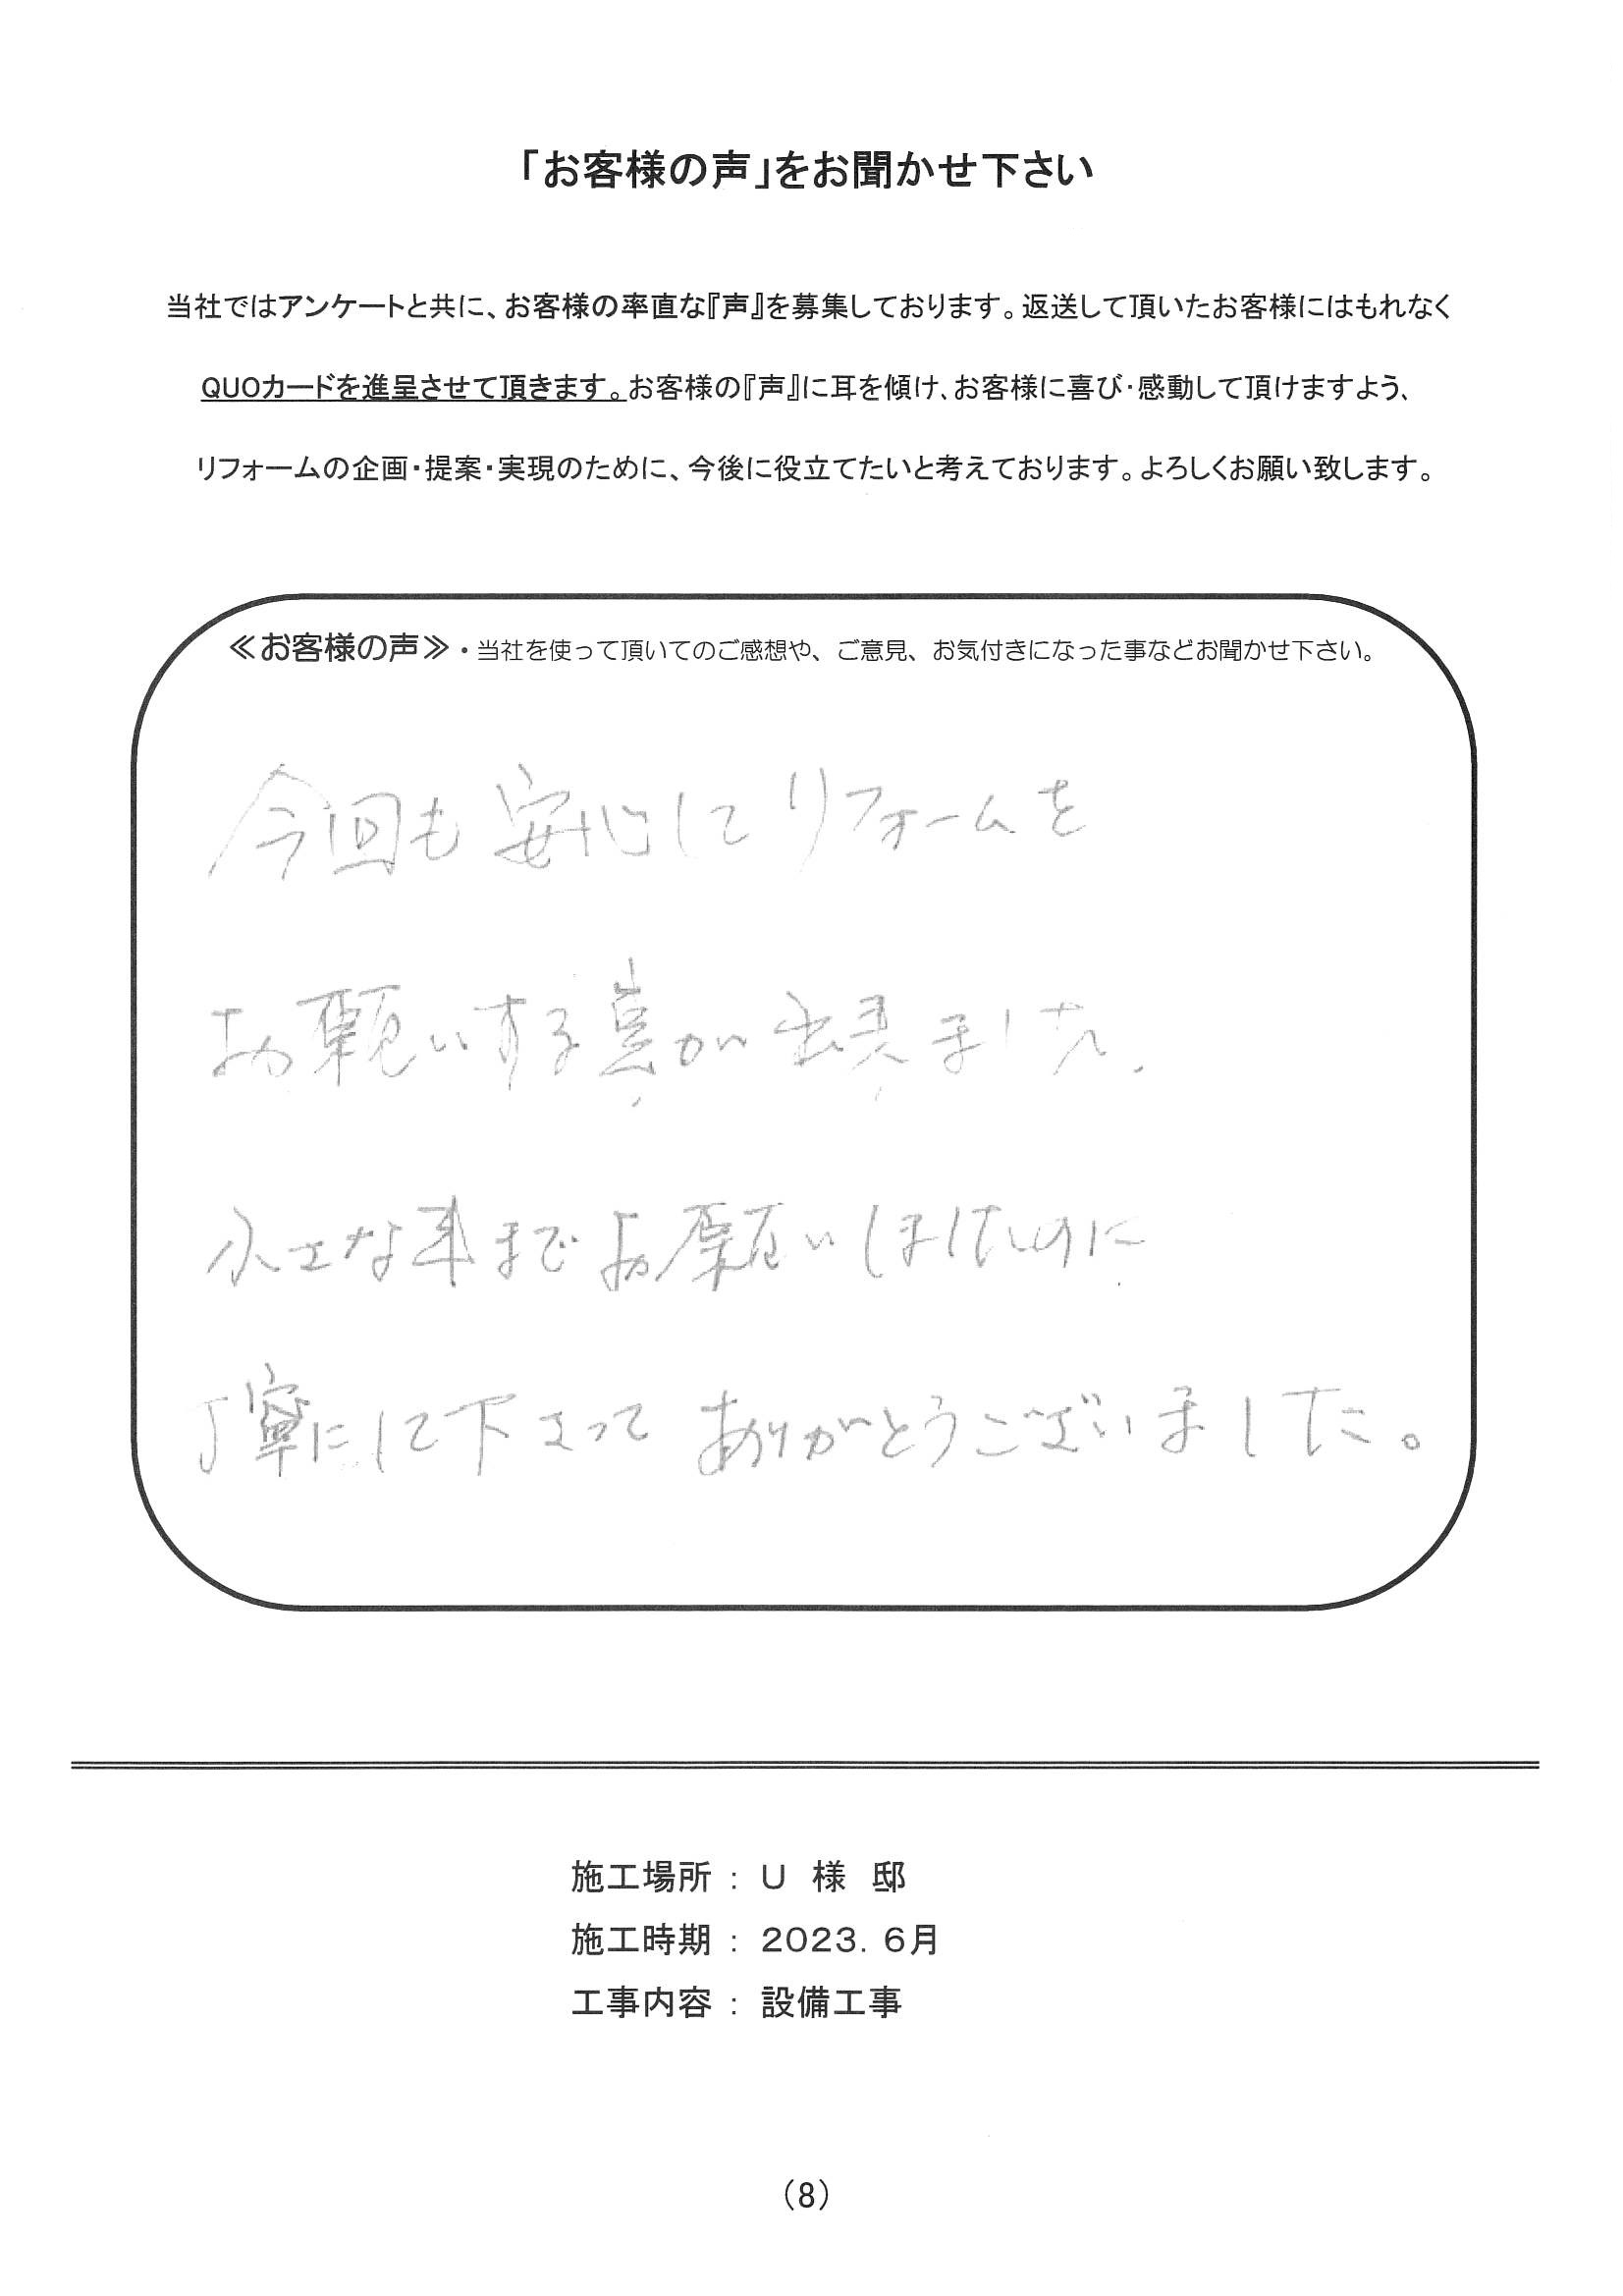 「お客様の声」をお聞かせ下さい
当社ではアンケートと共に、お客様の率直な『声』を募集しております。返送して頂いたお客様にはもれなく
QUOカードを進呈させて頂きます。お客様の『声』に耳を傾け、お客様に喜び・感動して頂けますよう、
リフォームの企画・提案・実現のために、今後に役立てたいと考えております。よろしくお願い致します。
≪お客様の声≫・当社を使って頂いてのご感想や、ご意見、お気付きになった事などお聞かせ下さい。
今回も安心してリフォームを
お願いする事が出来ました。
小さな事までお願いしましたのに
丁寧にして下さってありがとうございました。
施工場所 : U 様 邸
施工時期 : 2023. 6月
工事内容 : 設備工事
(8)